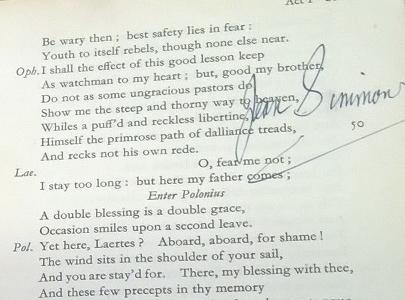 Be wary then ; best safety lies in fear :
Youth to itself rebels, though none else near.
Oph. I shall the effect of this good lesson keep
As watchman to my heart ; but, good my brother,
Do not as some ungracious pastors do,
Show me the steep and thorny way to heaven,
Whiles a puff'd and reckless libertine,
Himself the primrose path of dalliance treads,
Jean Simmon
50
And recks not his own rede.
Lae. O, fear me not ;
I stay too long : but here my father comes ;
Enter Polonius
A double blessing is a double grace,
Occasion smiles upon a second leave.
Pol. Yet here, Laertes ? Aboard, aboard, for shame !
The wind sits in the shoulder of your sail,
And you are stay'd for. There, my blessing with thee,
And these few precepts in thy memory